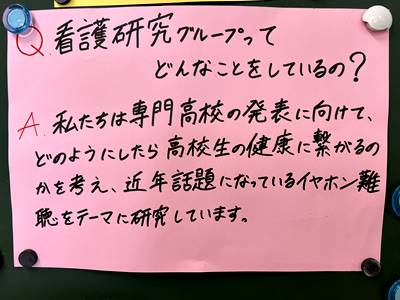 Q. 看護研究グループって
どんなことをしているの？
A. 私たちは専門高校の発表に向けて、
どのようにしたら高校生の健康に繋がるの
かを考え、近年話題になっているイヤホン難
聴をテーマに研究しています。